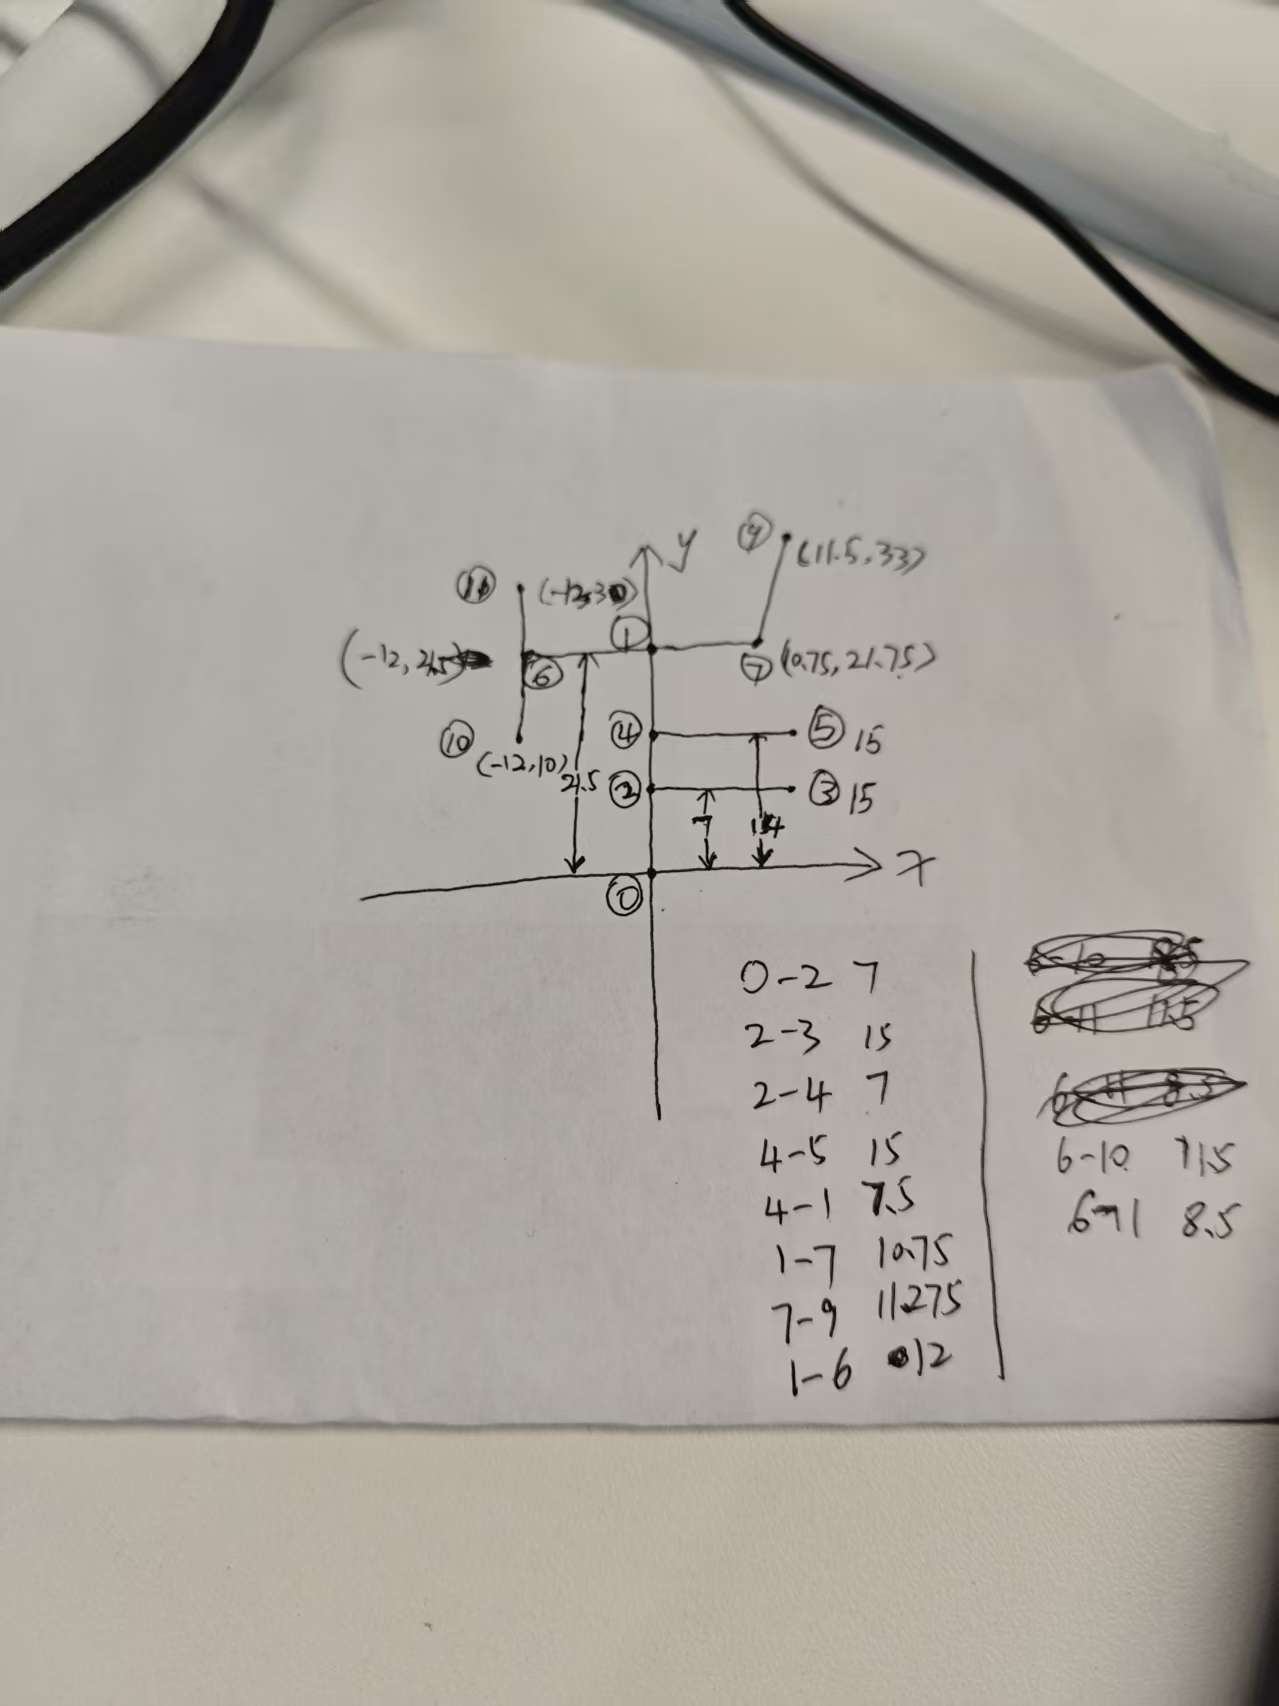 y
⑨
(11.5, 33)
⑪ (-12, 30)
①
(-12, 21.5)
⑥
⑦ (10.75, 21.75)
④
⑤ 15
⑩
(-12, 10)
21.5
②
③ 15
7
14
x
⓪
0-2 7
2-3 15
2-4 7
4-5 15
4-1 7.5
1-7 10.75
7-9 11.275
1-6 12
6-10 11.5
6-11 8.5